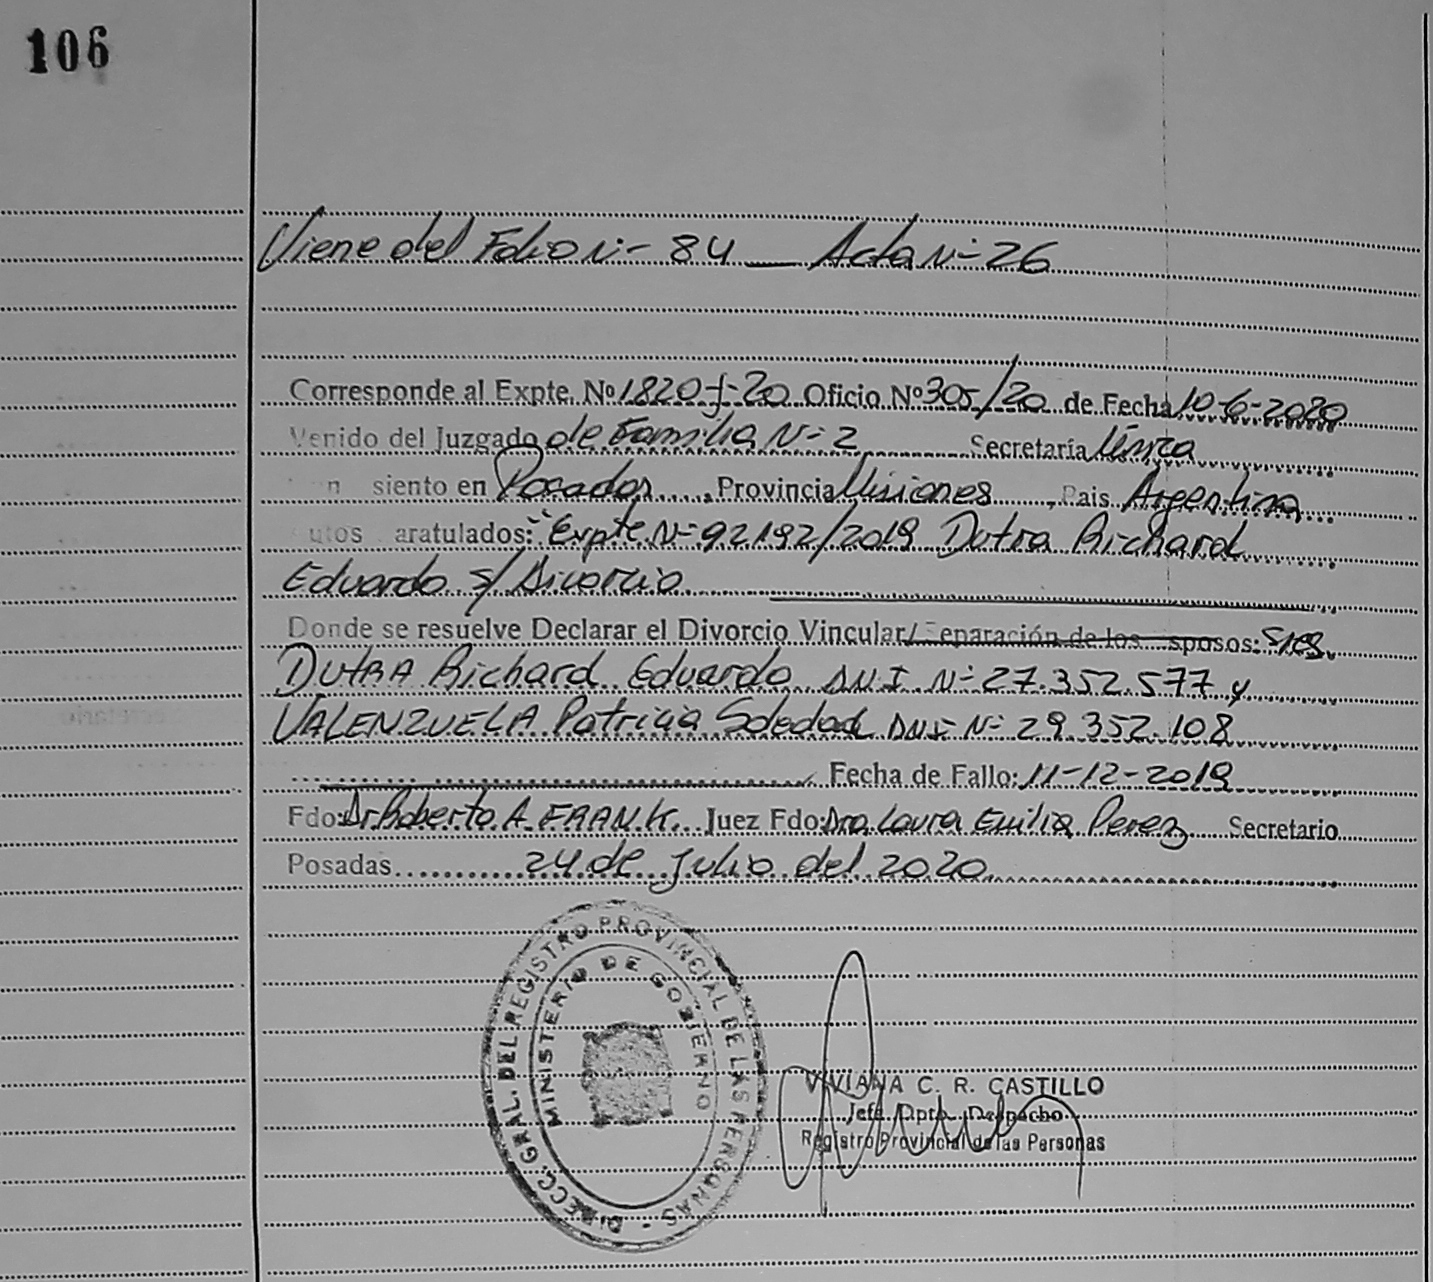 106
Viene del Folio Nº 84 — Acta Nº 26
Corresponde al Expte. Nº 1820-J-20 Oficio Nº 305/20 de Fecha 10-6-2020
Venido del Juzgado de Familia Nº 2 Secretaría Única
n siento en Posadas, Provincia Misiones, Pais Argentina
utos aratulados: "Expte Nº 92192/2019 Dutra Richard
Eduardo s/ Divorcio
Donde se resuelve Declarar el Divorcio Vincular/ eparación de los sposos: Sres.
DUTRA Richard Eduardo DNI Nº 27.352.577 y
VALENZUELA Patricia Soledad DNI Nº 29.352.108
Fecha de Fallo: 11-12-2019
Fdo: Dr Roberto A. FRANK Juez Fdo: Dra Laura Emilia Perez Secretario
Posadas 24 de Julio del 2020
DIRECC. GRAL. DEL REGISTRO PROVINCIAL DE LAS PERSONAS -
MINISTERIO DE GOBIERNO
VIVIANA C. R. CASTILLO
Jefe Dpto. Despacho
Registro Provincial de las Personas